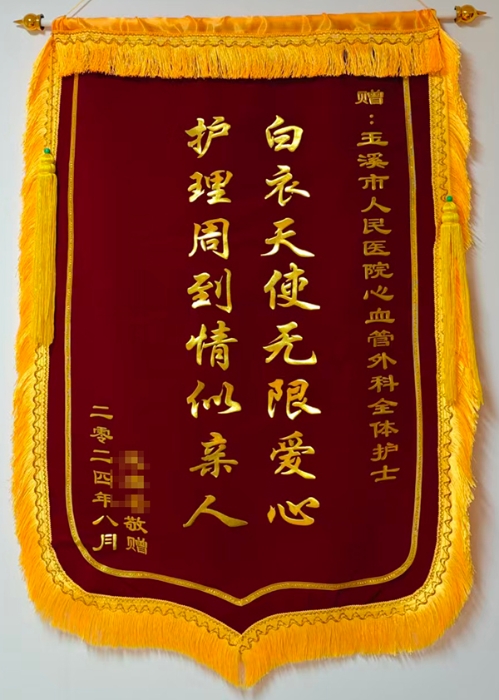 赠：玉溪市人民医院心血管外科全体护士
白衣天使无限爱心
护理周到情似亲人
敬赠
二零二四年八月